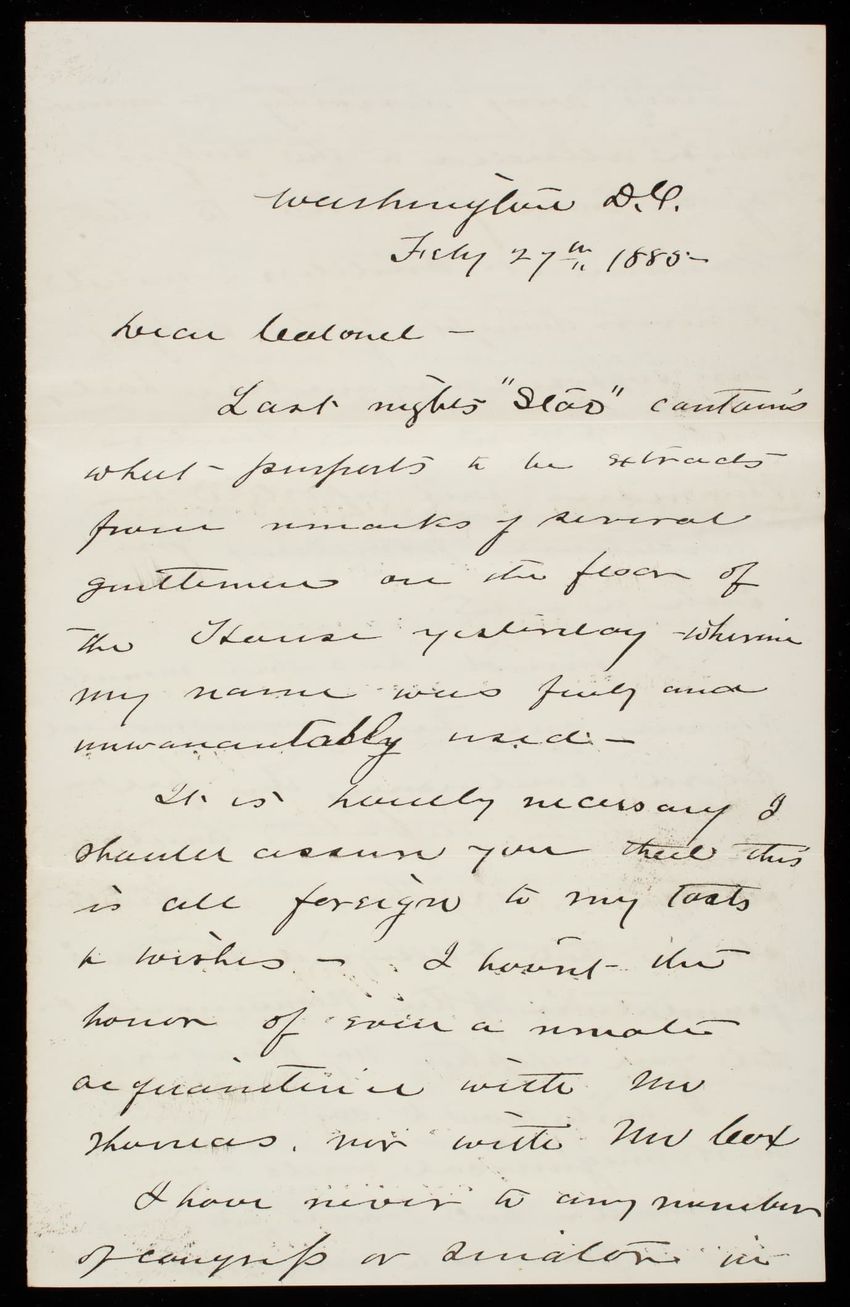 Washington D.C.
Feby 27th 1885
Dear Colonel -
Last nights "Star" contains
what purports to be extracts
from remarks of several
gentlemen on the floor of
the House yesterday wherein
my name was freely and
unwarrantably used -
It is hardly necessary I
should assure you that this
is all foreign to my tasts
& wishes - I havn't the
honor of even a remote
acquaintance with Mr
Thomas. nor with Mr Cox
I have never to any member
of congress or senator in